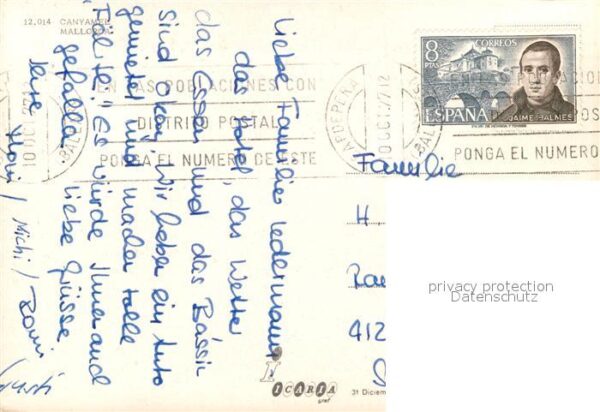 12.014 CANYAMEL
MALLORCA
Liebe Familie Ledermann
das Hotel, das Wetter
das Essen und das Bassin
sind okay. Wir haben ein Auto
gemietet und machen tolle
Es würde Ihnen auch
gefallen. Liebe Grüsse
Michi / Romi /
10 OCT. 77.12
EN LAS POBLACIONES CON
DISTRITO POSTAL
PONGA EL NUMERO DE ESTE
CAPDEPERA
8
PTAS
CORREOS
ESPAÑA
JAIME BALMES
PONGA EL NUMERO
Familie
H.
412
privacy protection
Datenschutz
ICARIA
graf
31 Diciem